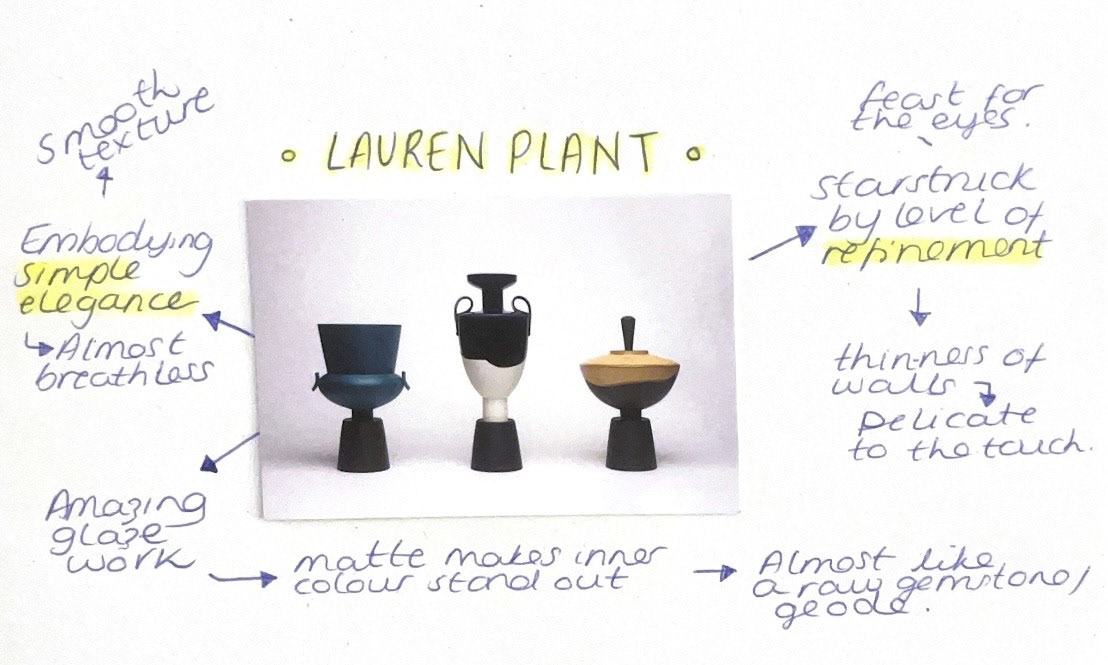 Smooth
texture
• LAUREN PLANT •
feast for
the eyes.
Embodying
simple
elegance
Almost
breathless
starstruck
by level of
refinement
thin-ness of
walls
Delicate
to the touch.
Amazing
glaze
work
matte makes inner
colour stand out
Almost like
a raw gemstone/
geode.